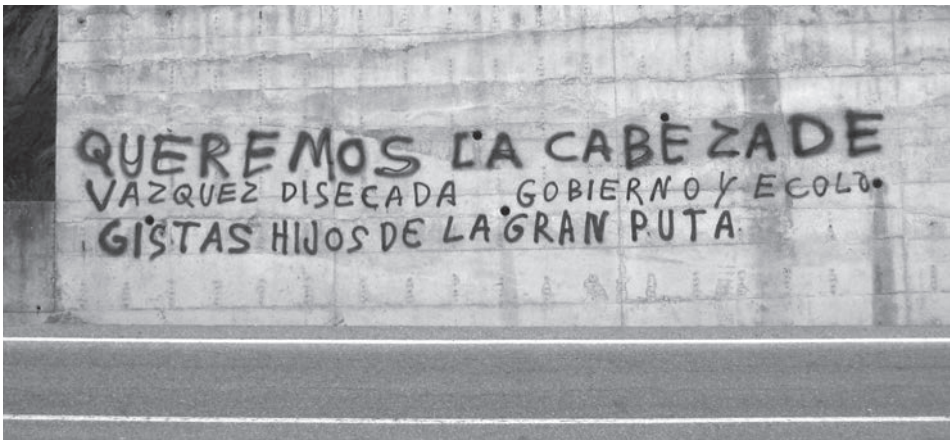 QUEREMOS LA CABEZA DE
VAZQUEZ DISECADA GOBIERNO Y ECOLO
GISTAS HIJOS DE LA GRAN PUTA